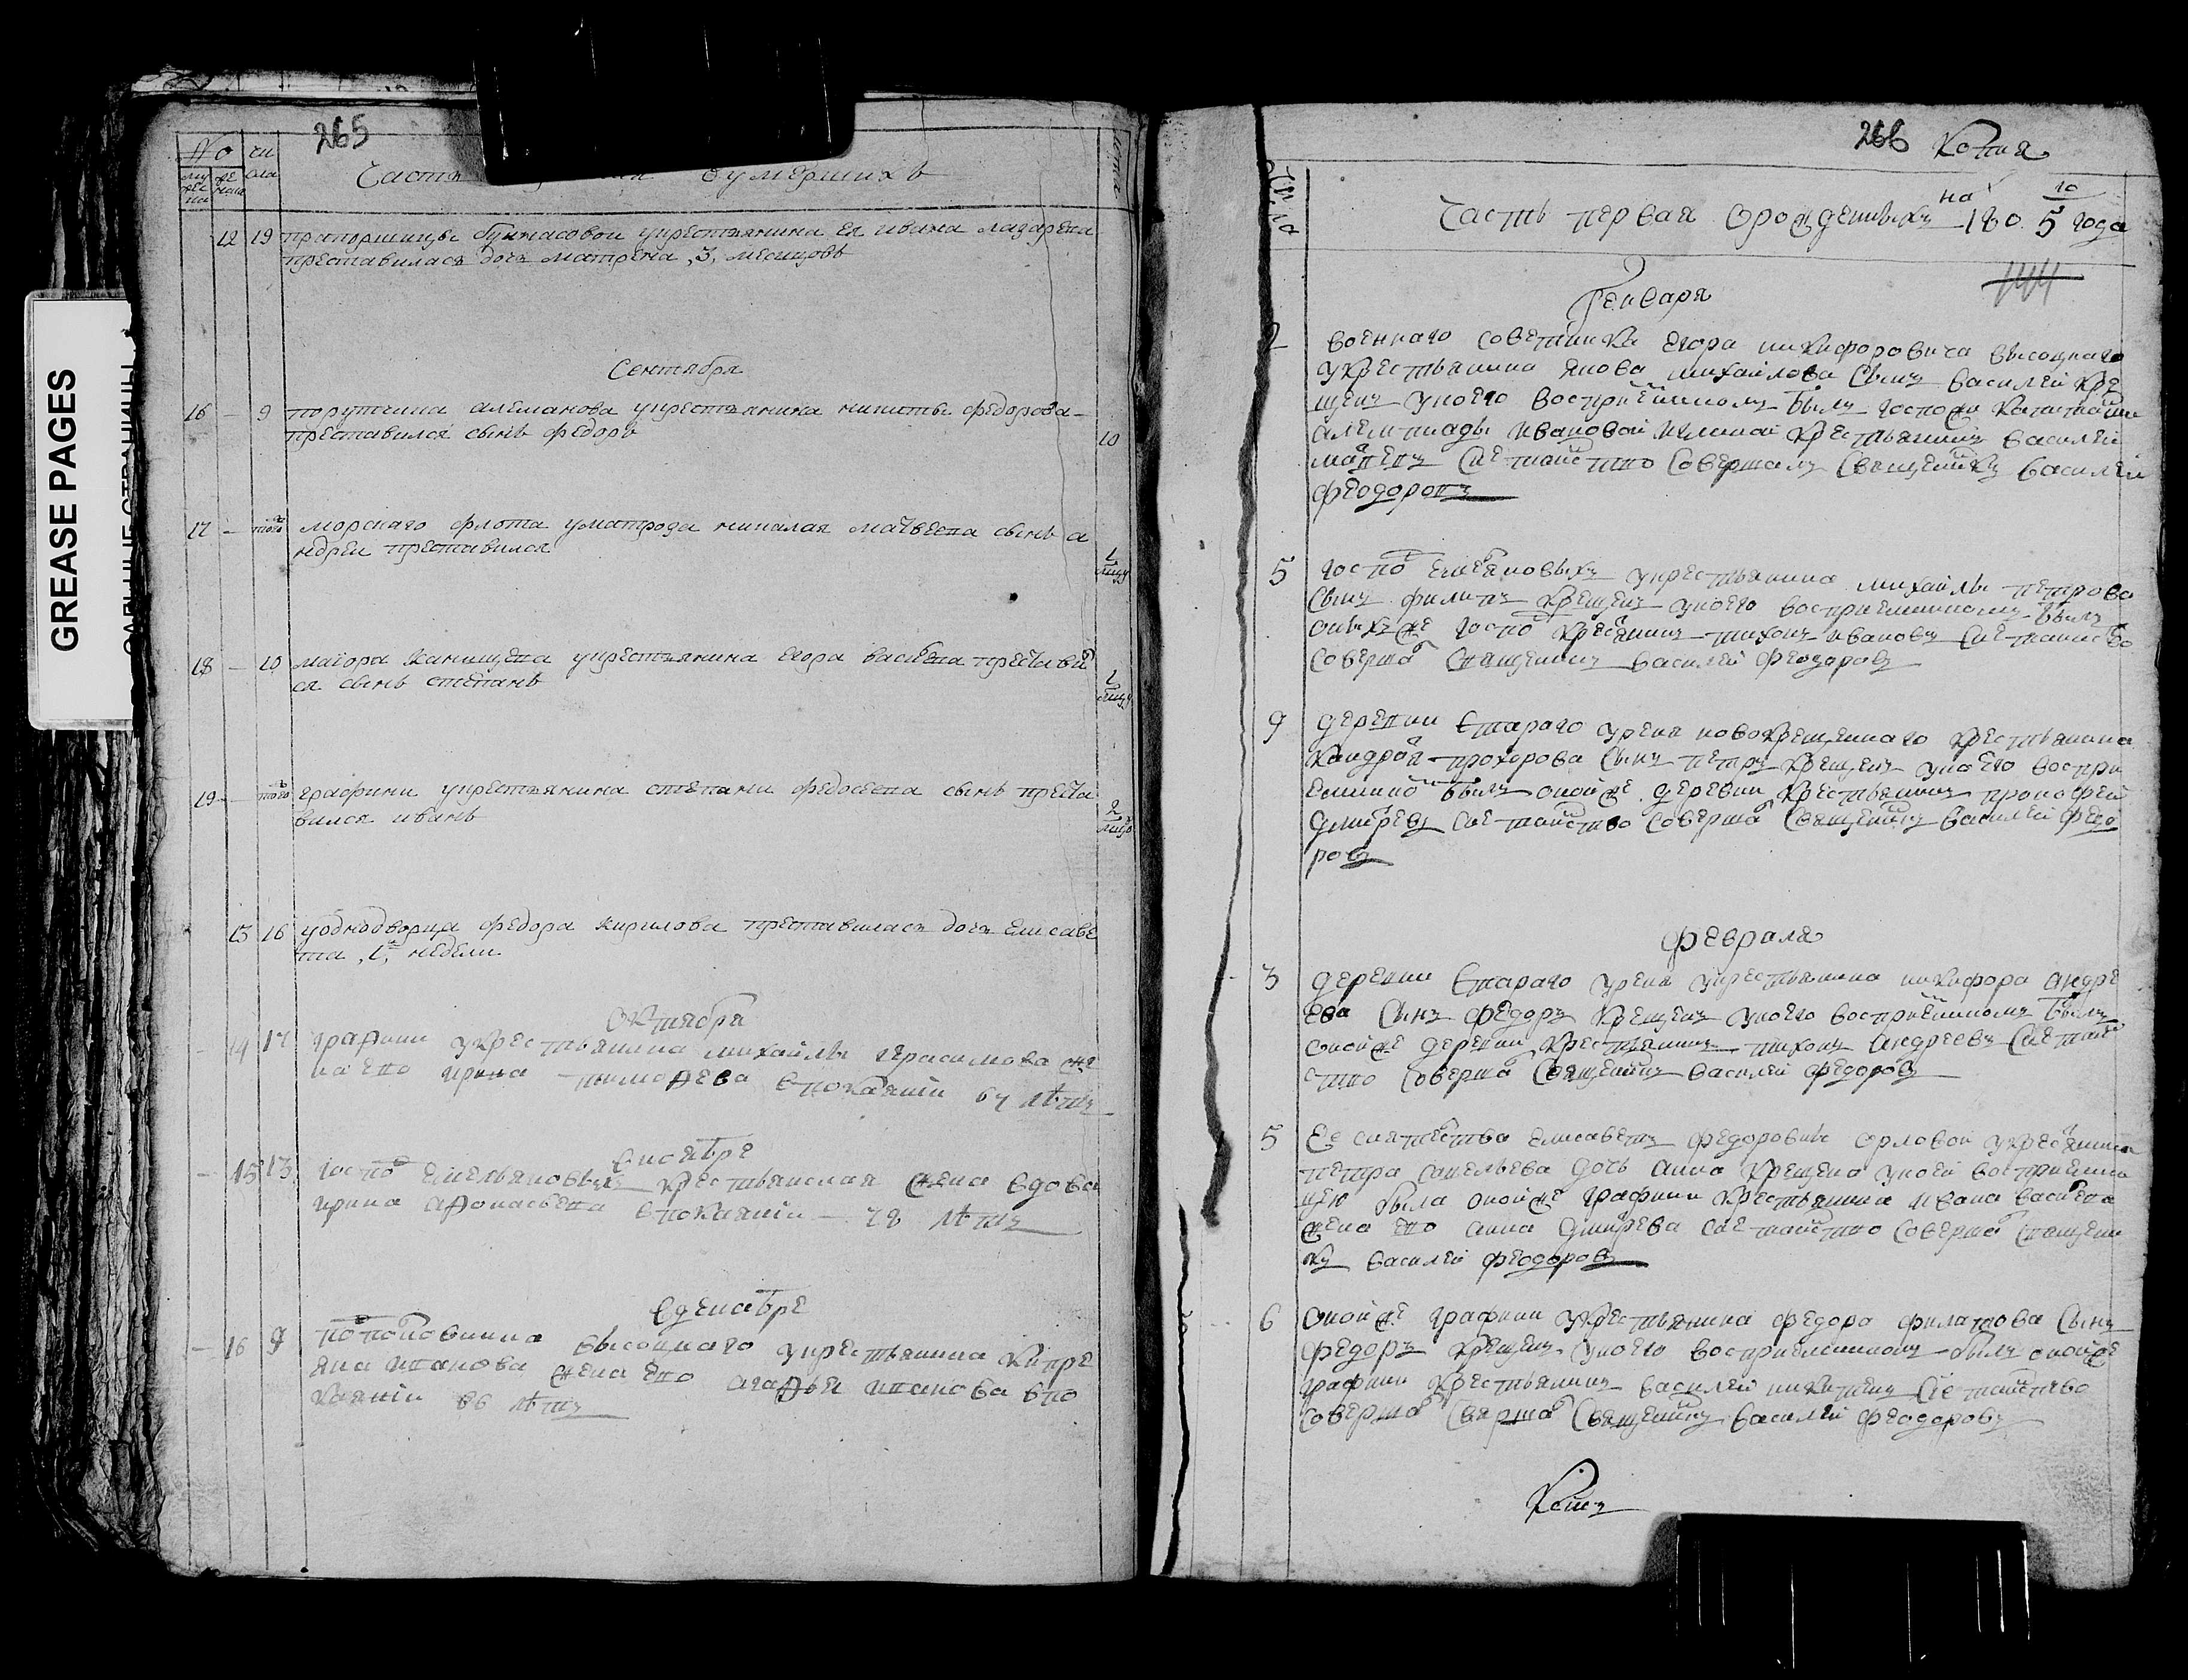 GREASE PAGES
265
No
чи
сла
лѣта
му
жес
ка
же
нска
Часть умершихъ
12 19 прапорщицы Бунтасовой укрестьянина ея ивана лазарева
преставилась дочь матрена ,3, месяцовъ
Сентября
16 - 9 порутчика алеманова укрестьянина никиты федорова
преставился сынъ федоръ 10
17 - того морскаго флота уматроза николая матвеева сынъ а
ндреи преставился 1
18 - 10 маіора канищева укрестьянина егора васильева преставил
ся сынъ степанъ 1
19 - того графини укрестьянина степана федосеева сынъ преста
вился иванъ 2
13 16 уоднодворца федора кирилова преставилась дочь елисаве
та ,1, недели
Октября
- 14 17 графини укрестьянина михайлы герасимова же
на ево ирина тимофѣева впокаяніи 67 лѣтъ
вноябре
- 15 13 госпо емельяновыхъ крестьянская жена вдова
ирина афонасьева впокаяніи 78 лѣтъ
вдекабре
- 16 9 высоцкаго укрестьянина кипре
яна иванова жена ево агафья иванова впо
каяніи 86 лѣтъ
266 Копия
число
Часть первая орожденныхъ на 1805 года
10
144
Генваря
2 военнаго советника егора никифоровича высоцкаго
укрестьянина якова михайлова сынъ василей кре
щенъ унего восприемникомъ былъ госпожи
ивановой крестьянинъ василей
сие таинство совершалъ священникъ василей
феодоровъ
5 госпо емеляновыхъ укрестьянина михайлы петрова
сынъ филипъ крещенъ унего восприемникомъ былъ
оныхъ же госпо кресянинъ тихонъ ивановъ сие таинство
соверша священникъ василей феодоровъ
9 деревни Стараго урена новокрещеннаго крестьянина
кондрат прохорова сынъ петръ крещенъ унего воспри
емнико былъ оной же деревни крестьянинъ прокофей
дмитревъ сие таинство соверша священникъ василей федо
ровъ
Февраля
3 деревни Стараго урена укрестьянина никифора андре
ева сынъ федоръ крещенъ унего восприемникомъ былъ
оной же деревни крестьянинъ тихонъ андреевъ сие таин
ство соверша священникъ василей федоровъ
5 Ее сиятества елисаветы федоровны орловой укресянина
петра савельева дочь анна крещена уней восприемни
цею была оной же графини крестьянина ивана васильева
жена ево анна дмитрева сие таинство соверша священни
къ василей феодоровъ
6 оной же графини укрестьянина федора филатова сынъ
федоръ крещенъ унего восприемникомъ былъ оной же
графини крестьянинъ василей никитинъ сие таинство
соверша сверша священникъ василей феодоровъ
Конецъ